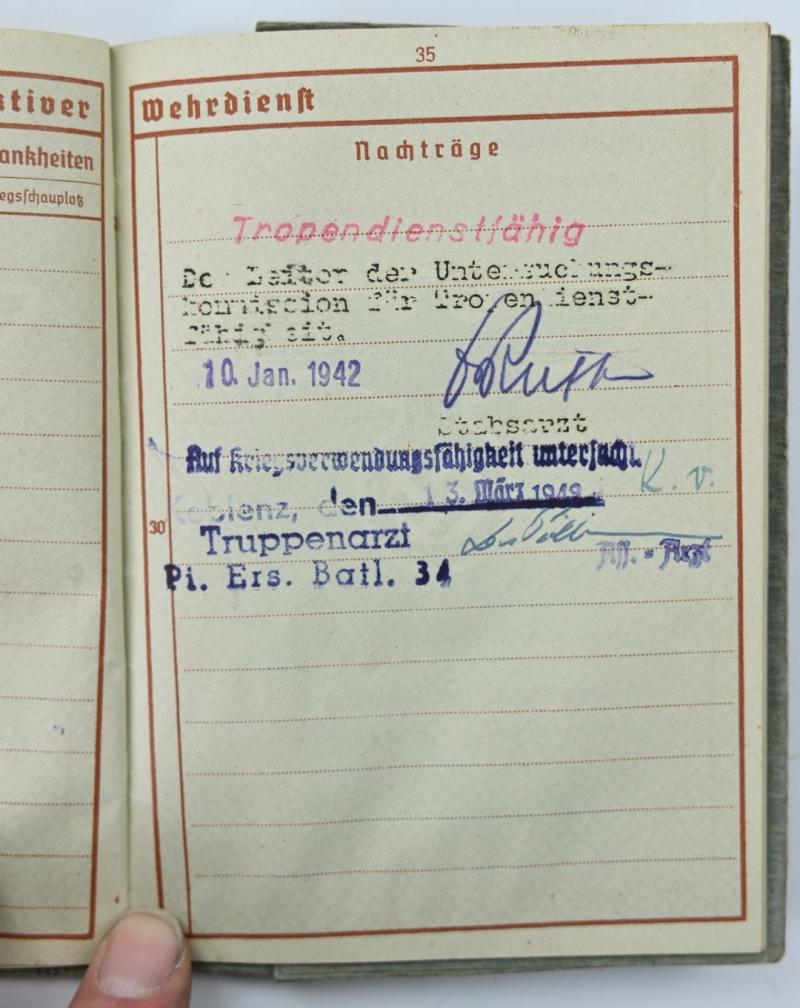 35
ktiver
Wehrdienst
ankheiten
egsschauplatz
Nachträge
Tropendienstfähig
Der Leiter der Untersuchungs-
kommission für Tropendienst-
fähigkeit.
10. Jan. 1942
Stabsarzt
Auf Kriegsverwendungsfähigkeit untersucht.
K. v.
Koblenz, den 13. März 1942
30
Truppenarzt
Ass. = Arzt
Pi. Ers. Batl. 34